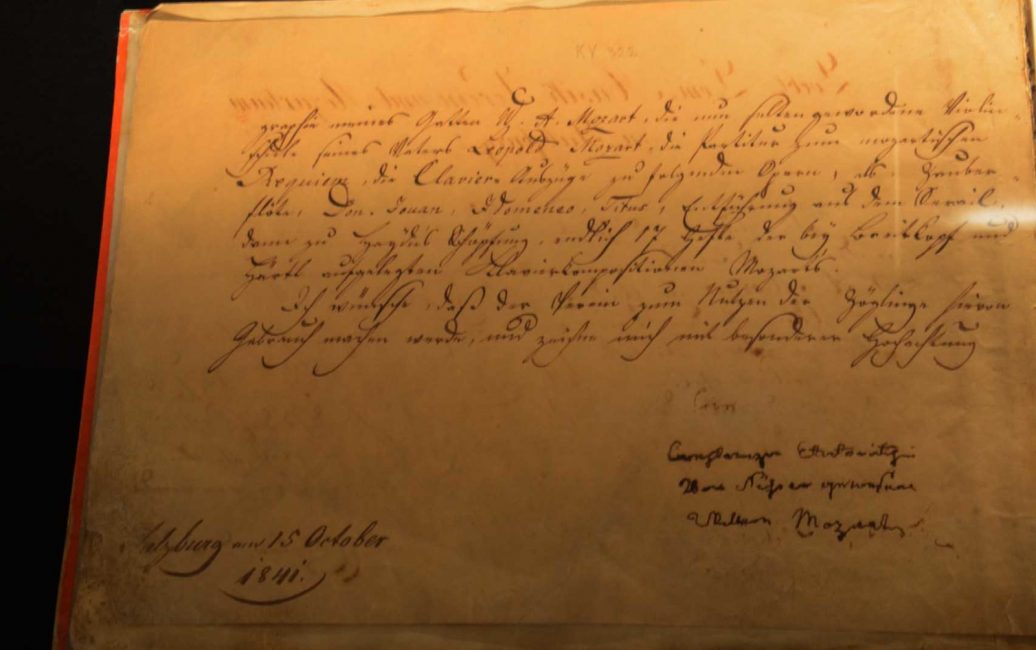 KV 322
graphie meines Gatten W. A. Mozart, die nun selten gewordene Violin-
schule seines Vaters Leopold Mozart, die Partitur zum mozartischen
Requiem, die Clavier-Auszüge zu folgenden Opern, als: Zauber-
flöte, Don Jouan, Idomeneo, Titus, Entführung aus dem Serail,
dann zu Haydns Schöpfung, endlich 17 Hefte der bey Breitkopf und
Härtl aufgelegten Klavierkompositionen Mozarts.
Ich wünsche, daß der Verein zum Nutzen der Zöglinge hievon
Gebrauch machen werde, und zeichne mich mit besonderer Hochachtung
von gewesene
Mozart
Salzburg am 15 October
1841.